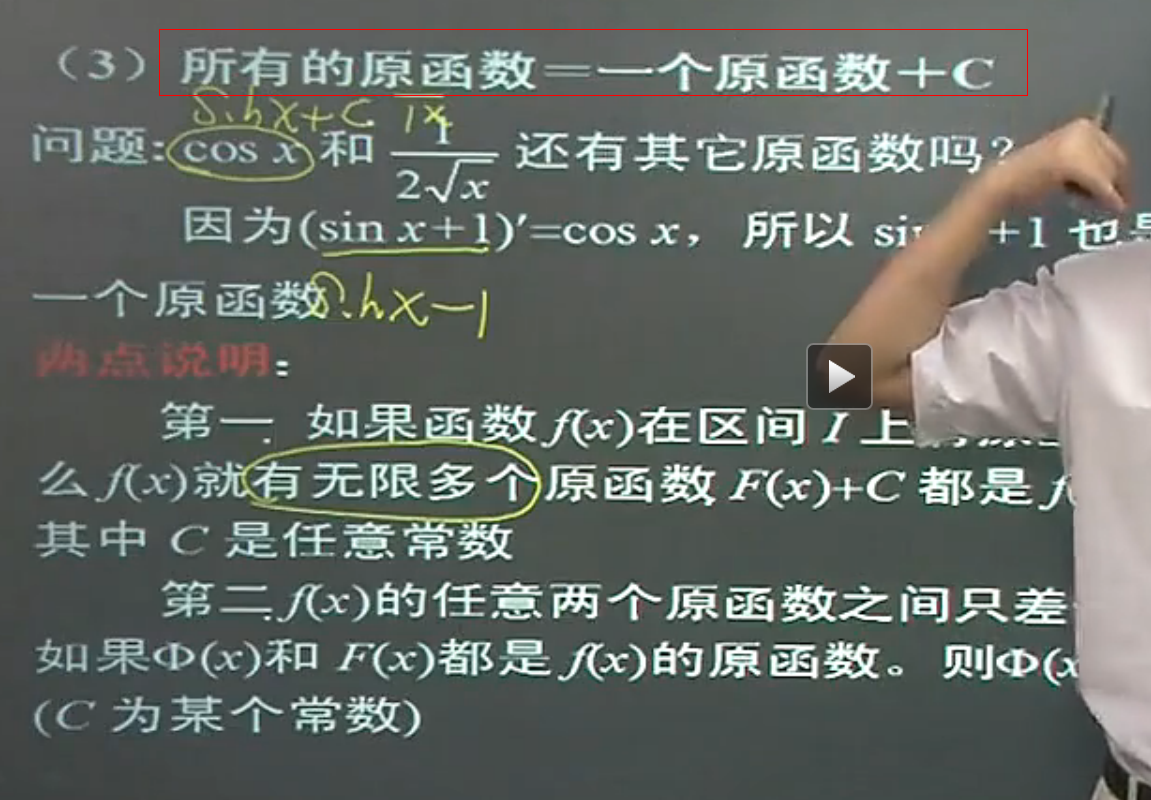 （3）所有的原函数=一个原函数+C
sinx+C √x
问题: cos x 和 1/(2√x) 还有其它原函数吗?
因为(sin x+1)′=cos x，所以 +1 也
一个原函数 sinx-1
两点说明:
第一. 如果函数 f(x)在区间 I 上
么 f(x)就有无限多个原函数 F(x)+C 都是
其中 C 是任意常数
第二. f(x)的任意两个原函数之间只差
如果Φ(x)和 F(x)都是 f(x)的原函数。则Φ(x
(C 为某个常数)